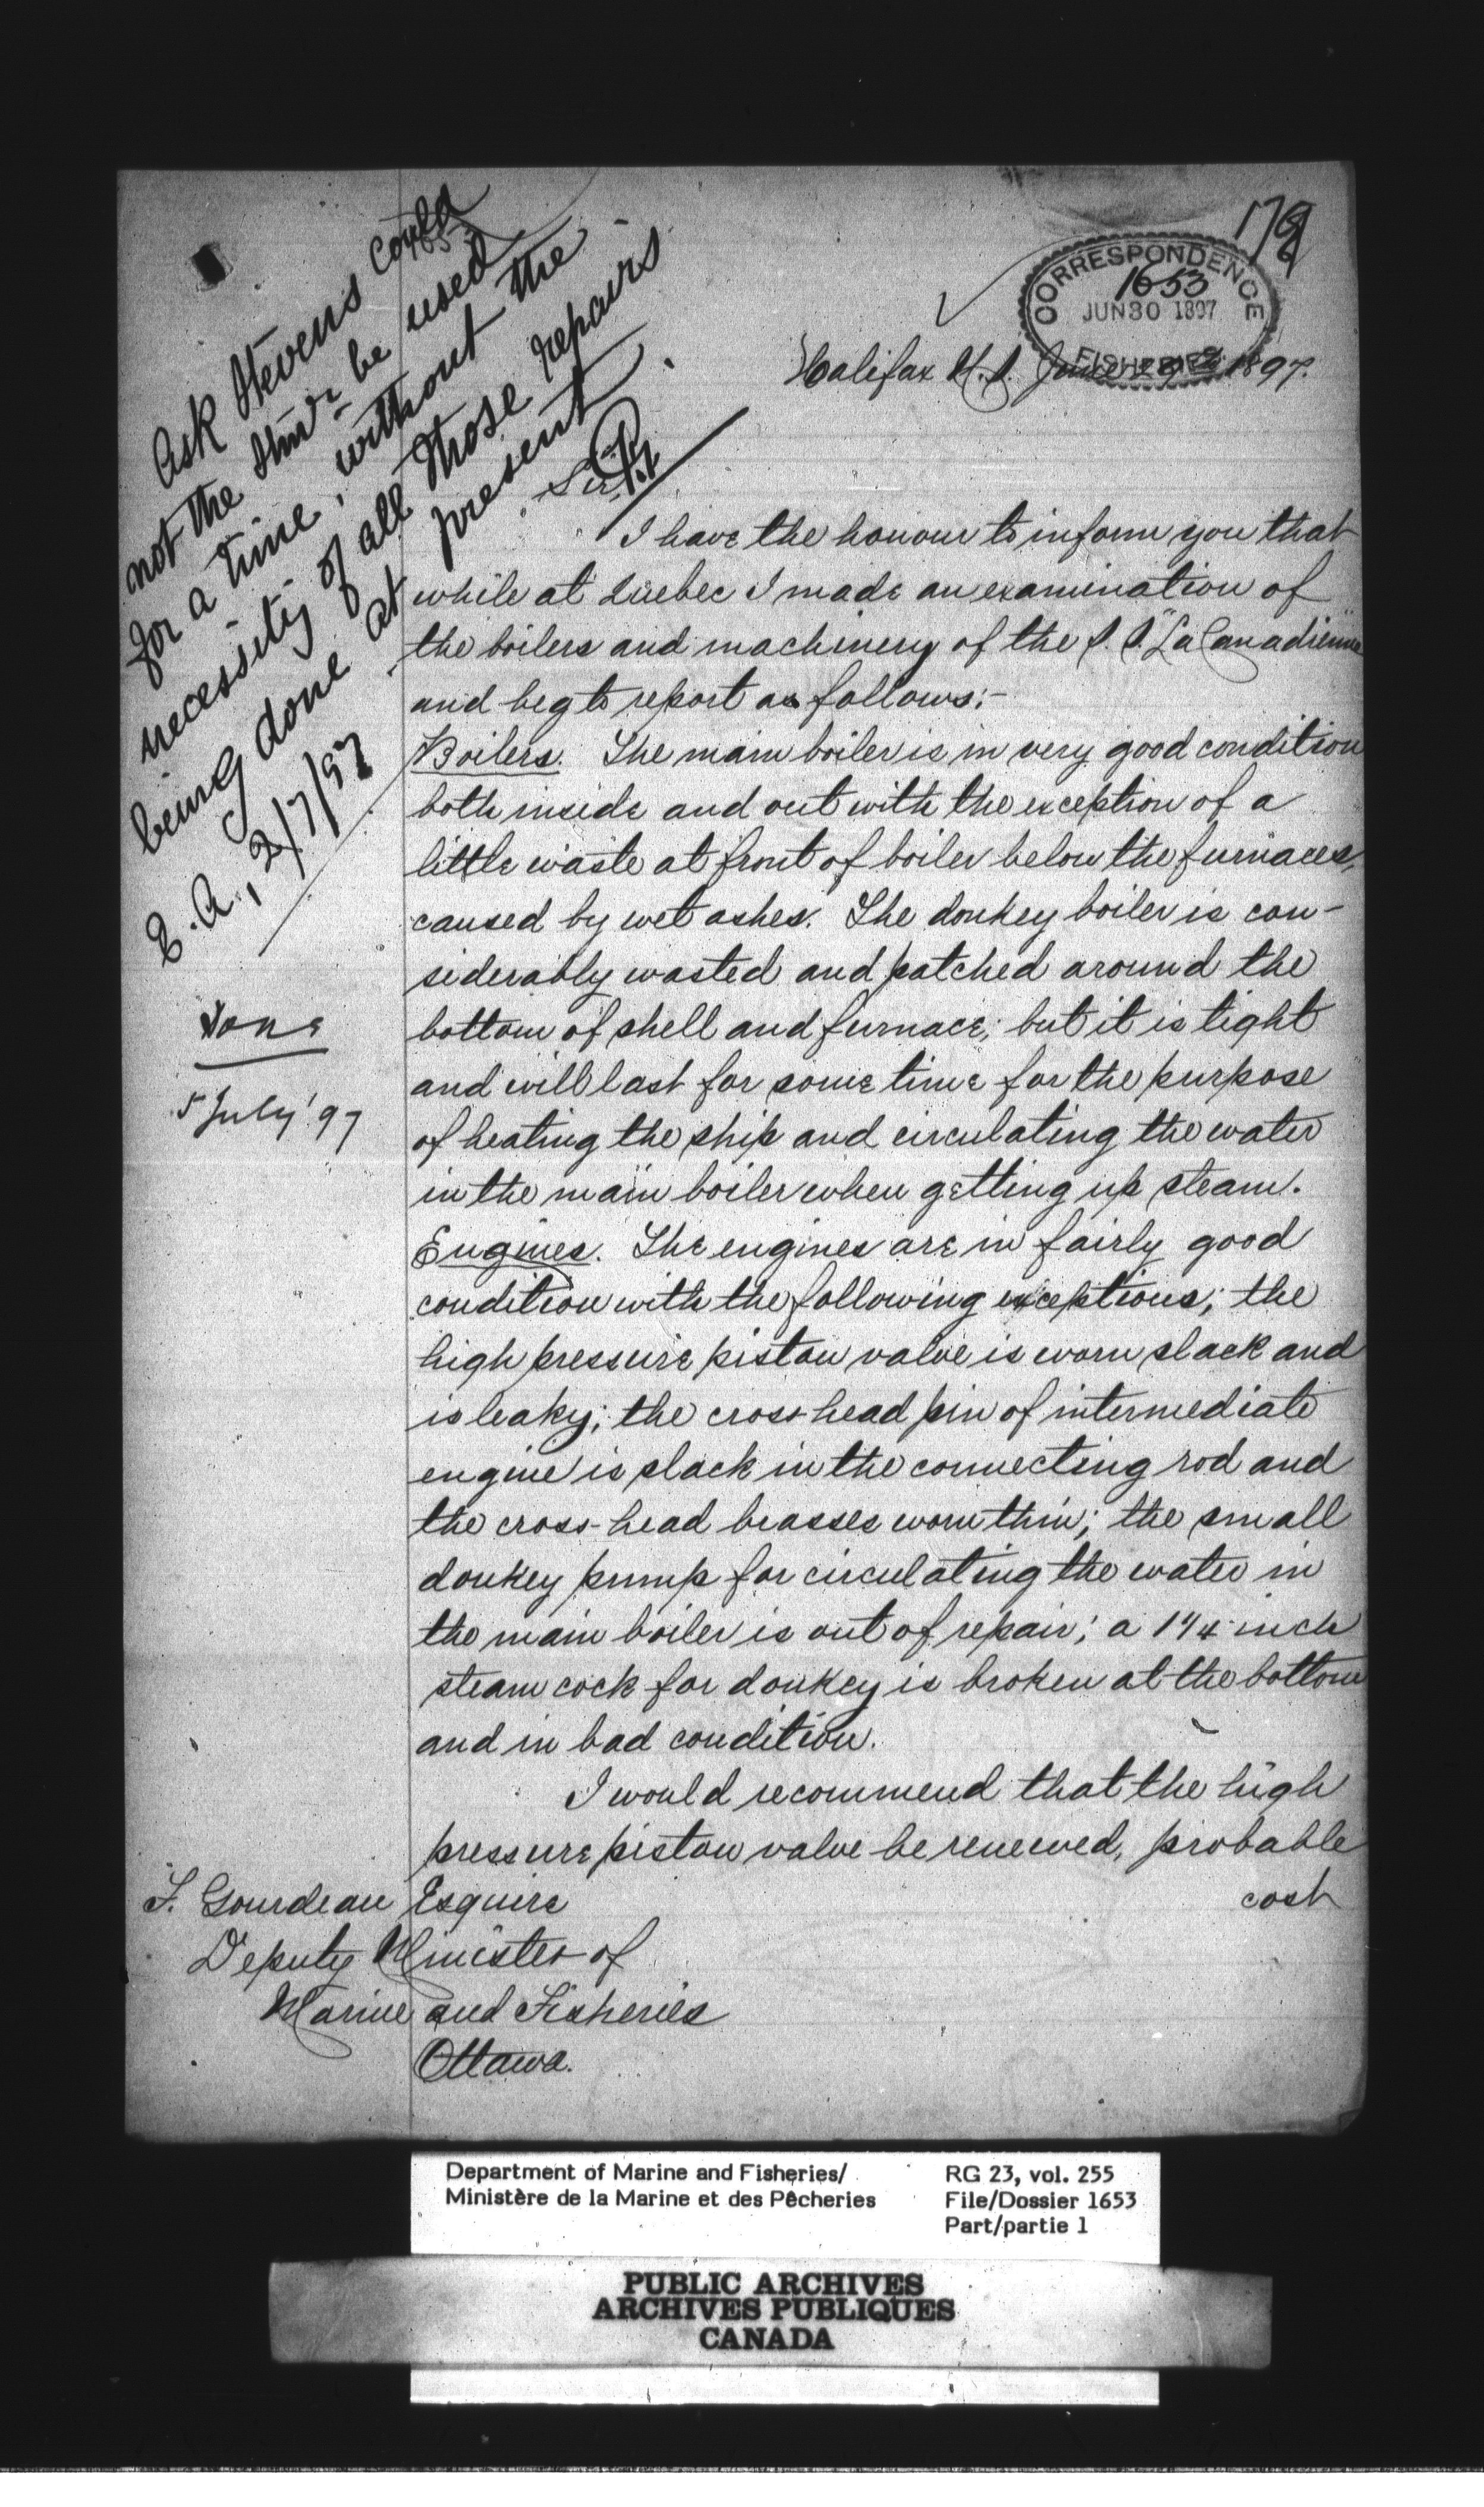 178
CORRESPONDENCE
1653
JUN 30 1897
FISHERIES
Halifax N.S. June 1897.
Ask Stevens could
not the Stmr be used
for a time, without the
necessity of all those repairs
being done at present
E. A., 2/7/97
Done
5 July '97
Sir,
I have the honour to inform you that
while at Quebec I made an examination of
the boilers and machinery of the S. S. "La Canadienne"
and beg to report as follows:-
Boilers. The main boiler is in very good condition
both inside and out with the exception of a
little waste at front of boiler below the furnaces,
caused by wet ashes. The donkey boiler is con-
siderably wasted and patched around the
bottom of shell and furnace; but it is tight
and will last for some time for the purpose
of heating the ship and circulating the water
in the main boiler when getting up steam.
Engines. The engines are in fairly good
condition with the following exceptions; the
high pressure piston valve is worn slack and
is leaky; the cross-head pin of intermediate
engine is slack in the connecting rod and
the cross-head brasses worn thin; the small
donkey pump for circulating the water in
the main boiler is out of repair; a 1 1/4 inch
steam cock for donkey is broken at the bottom
and in bad condition.
I would recommend that the high
pressure piston valve be renewed, probable
cost
F. Gourdeau Esquire
Deputy Minister of
Marine and Fisheries
Ottawa.
Department of Marine and Fisheries/
Ministère de la Marine et des Pêcheries
RG 23, vol. 255
File/Dossier 1653
Part/partie 1
PUBLIC ARCHIVES
ARCHIVES PUBLIQUES
CANADA